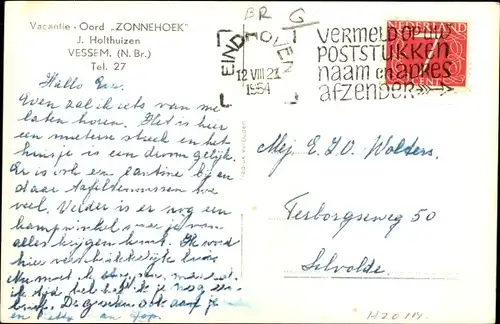 Vacantie - Oord „ZONNEHOEK"
J. Holthuizen
VESSEM. (N. Br.)
Tel. 27
BR G
EINDHOVEN
12 VIII 21
1954
VERMELD OP UW
POSTSTUKKEN
naam en adres
afzender
NEDERLAND
CENT
Hallo
Even zal ik iets van me
laten horen. Het is hier
een mieterse streek en het
huisje is een droom gelijk.
Er is ook een cantine bij en
daar tafeltennissen we
veel. Verder is er nog een
kampwinkel waar je van
alles krijgen kunt. Ik word
hier
Nu moet ik
ik tijd heb heb ik je nog een
brief. De groeten ook aan je
en an Jop.
Mej E. J. O. Wolders.
Terborgseweg 50
Silvolde.
H20114